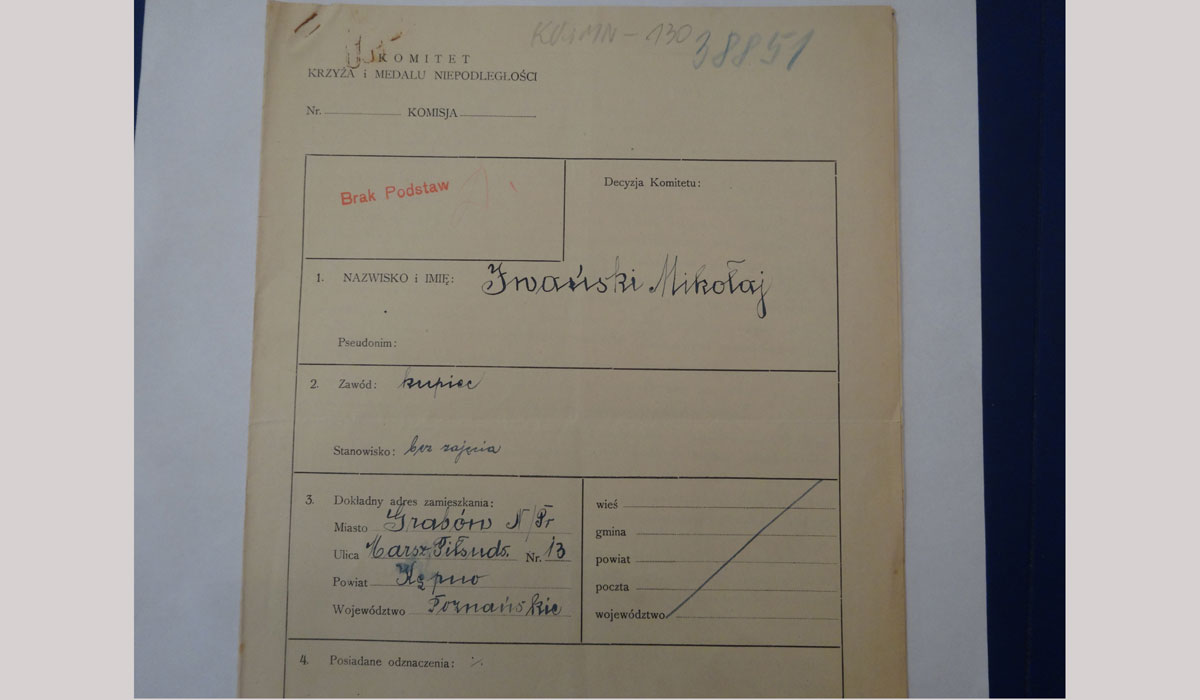 KOMITET
KRZYŻA i MEDALU NIEPODLEGŁOŚCI
KKiMN - 130
38851
Nr. KOMISJA
Brak Podstaw
Decyzja Komitetu:
1. NAZWISKO i IMIĘ: Iwański Mikołaj
Pseudonim:
2. Zawód: kupiec
Stanowisko: bez zajęcia
3. Dokładny adres zamieszkania:
Miasto Grabów N/Pr
Ulica Marsz. Piłsuds. Nr. 13
Powiat Kępno
Województwo Poznańskie
wieś
gmina
powiat
poczta
województwo
4. Posiadane odznaczenia: